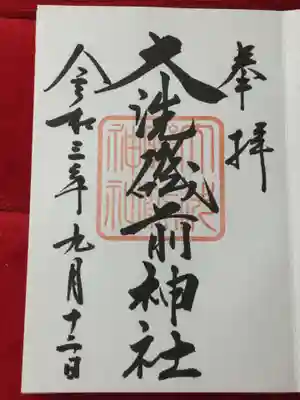 奉拝
大洗磯前神社
令和三年九月十二日